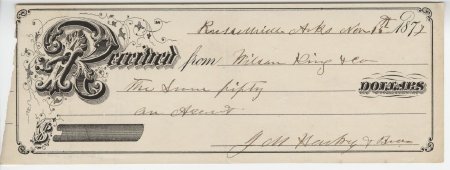 Russellville Arks Nov 18th 1877
Received from Wilson King & co
The Sum fifty DOLLARS
on Accent
$
J M Harkey & Bro